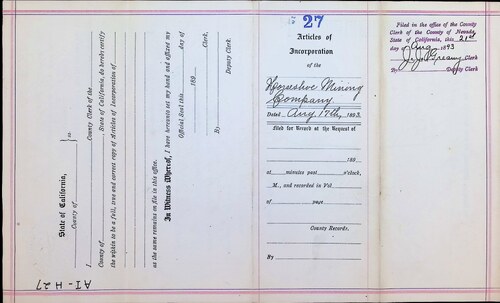 State of California,
County of
ss
I
County Clerk of the
County of
State of California, do hereby certify
the within to be a full, true and correct copy of Articles of Incorporation of
as the same remains on file in this office.
In Witness Whereof, I have hereunto set my hand and affixed my
Official Seal this
day of
189
Clerk.
By
Deputy Clerk.
AI-H-27
27
Articles of
Incorporation
of the
Horseshoe Mining
Company.
Dated Aug 17th, 1893.
Filed for Record at the Request of
189
at minutes past o'clock,
M., and recorded in Vol
of page
County Records.
By
Filed in the office of the County
Clerk of the County of Nevada,
State of California, this 21st
day of Aug 1893
J. J. Greany Clerk
By Deputy Clerk